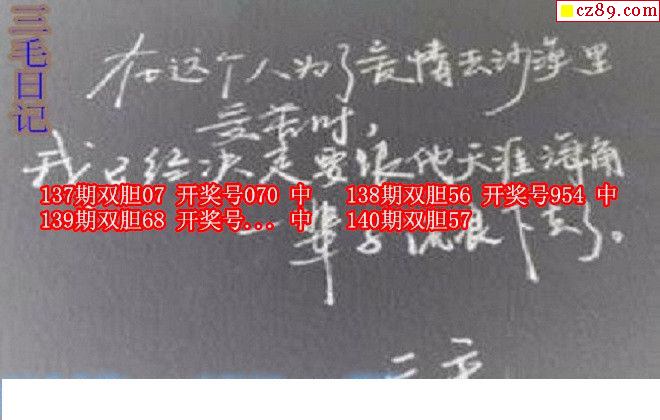 cz89.com
三毛日记
在这个人为了爱情去沙漠里
受苦时,
我已经决定要跟他天涯海角
137期双胆07 开奖号070 中 138期双胆56 开奖号954 中
139期双胆68 开奖号... 中 140期双胆57
一辈子流浪下去了。
三毛